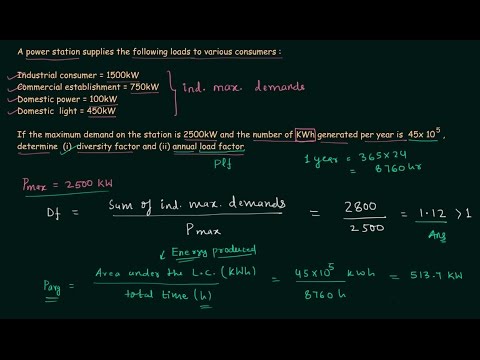 A power station supplies the following loads to various consumers :
Industrial consumer = 1500kW
Commercial establishment = 750kW
Domestic power = 100kW
Domestic light = 450kW
ind. max. demands
If the maximum demand on the station is 2500kW and the number of KWh generated per year is 45x 10⁵,
determine (i) diversity factor and (ii) annual load factor.
Plf
1 year = 365 x 24
= 8760 hr
Pmax = 2500 KW
Df = Sum of ind. max. demands / Pmax = 2800 / 2500 = 1.12 > 1
Ans
Energy produced
Pavg = Area under the L.C. (KWh) / total time (h) = 45x10⁵ kwh / 8760 h = 513.7 KW